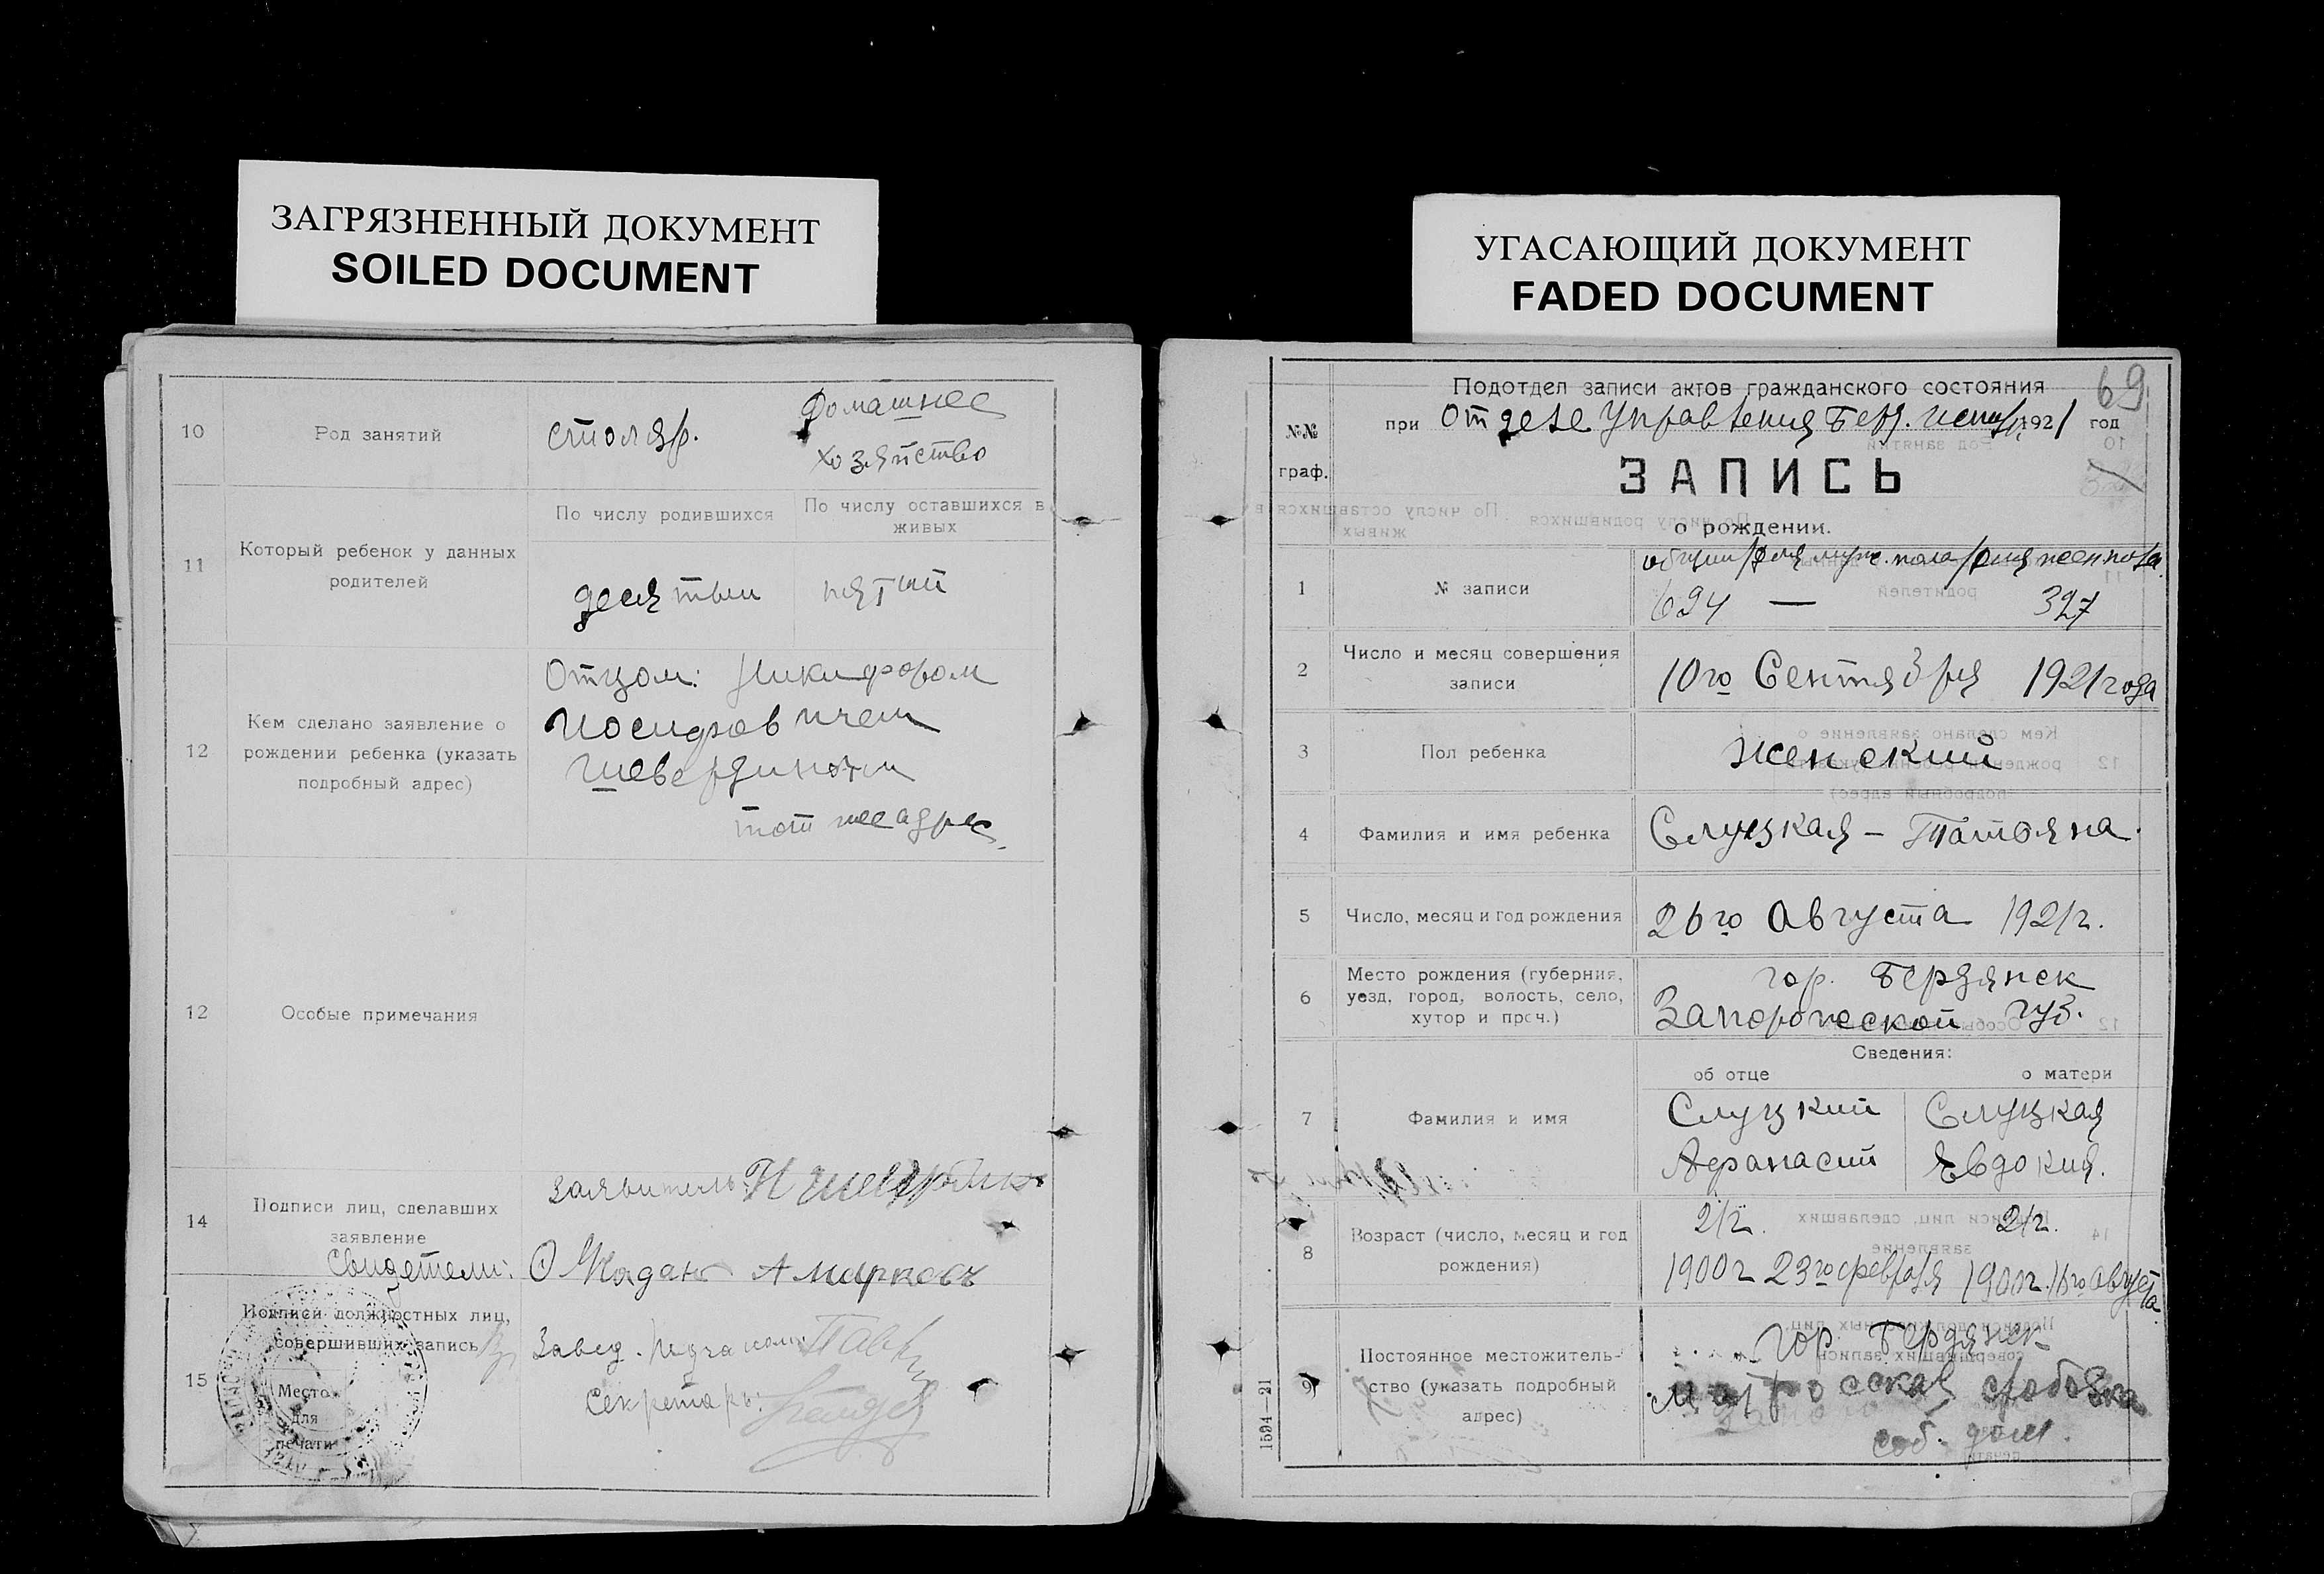 ЗАГРЯЗНЕННЫЙ ДОКУМЕНТ
SOILED DOCUMENT
10
Род занятий
столяр.
Домашнее
хозяйство
11
Который ребенок у данных
родителей
По числу родившихся
По числу оставшихся в
живых
десятый
пятый
12
Кем сделано заявление о
рождении ребенка (указать
подробный адрес)
Отцом: Никифором
Иосифовичем
Шевердиным
тот же адрес
12
Особые примечания
14
Подписи лиц, сделавших
заявление
заявитель: Н
Свидетели:
15
Подписи должностных лиц,
совершивших запись
Место
для
печати
Завед.
Секретарь:
УГАСАЮЩИЙ ДОКУМЕНТ
FADED DOCUMENT
69
Подотдел записи актов гражданского состояния
при Отделе Управления Берд. 1921 год
№№
граф.
ЗАПИСЬ
о рождении.
1
№ записи
общий/для муж. пола/для жен пола
624 — 327
2
Число и месяц совершения
записи
10го Сентября 1921 года
3
Пол ребенка
Женский
4
Фамилия и имя ребенка
Слуцкая – Татьяна.
5
Число, месяц и год рождения
26го Августа 1921г.
6
Место рождения (губерния,
уезд, город, волость, село,
хутор и проч.)
гор. Бердянск
Запорожской губ.
Сведения:
об отце
о матери
7
Фамилия и имя
Слуцкий
Афанасий
Слуцкая
Евдокия.
8
Возраст (число, месяц и год
рождения)
21г.
1900г 23го февраля
21г.
1900г. 16го августа
9
Постоянное местожитель-
ство (указать подробный
адрес)
гор. Бердянск
матросская слободка
соб. дом.
1594—21